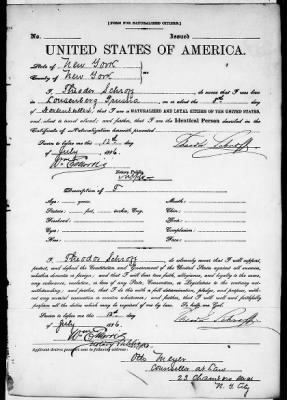 [FORM FOR NATURALIZED CITIZEN.]
No. Issued
UNITED STATES OF AMERICA.
State of New York
County of New York } ss:
I, Theodor Schropp, do swear that I was born
in Prussia, on or about the day
of; that I am a NATURALIZED AND LOYAL CITIZEN OF THE UNITED STATES,
and about to travel abroad; and further, that I am the Identical Person described in the
Certificate of Naturalization herewith presented.
Sworn to before me this 12th
day of July 186.
Notary Public
Description of T
Age: years. Mouth:
Stature: feet, inches, Eng. Chin:
Forehead: Hair:
Eyes: Complexion:
Nose: Face:
I, Theodor Schropp, do solemnly swear that I will support,
protect, and defend the Constitution and Government of the United States against all enemies,
whether domestic or foreign; and that I will bear true faith, allegiance, and loyalty to the same,
any ordinance, resolution, or law of any State, Convention, or Legislature to the contrary not-
withstanding; and further, that I do this with a full determination, pledge, and purpose, without
any mental reservation or evasion whatsoever; and further, that I will well and faithfully
perform all the duties which may be required of me by law. So help me God.
Sworn to before me this 12th
day of July 186.
Applicant desires passport sent to following address:
Otto Meyer
Counsellor at Law
23 Chambers
N. Y. City